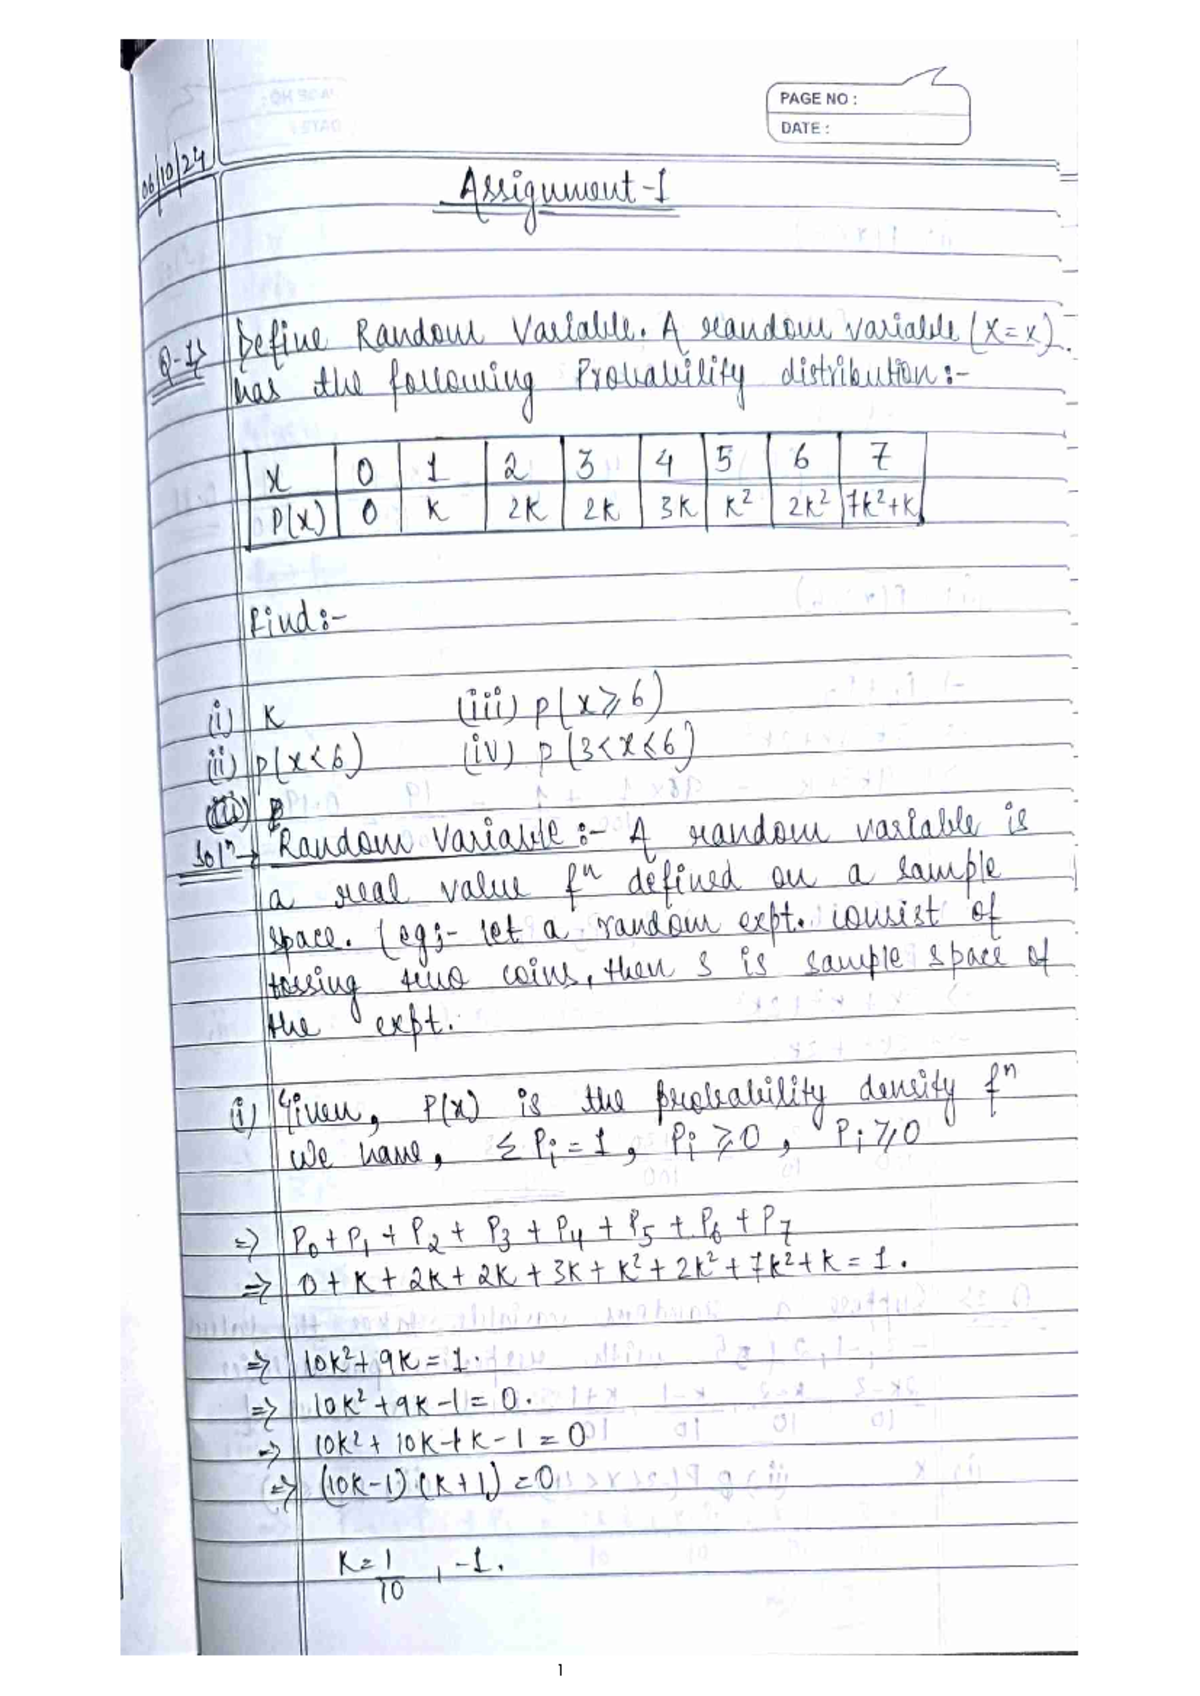 PAGE NO :
DATE :
06/10/24
Assignment-1
Q-1> Define Random Variable. A random variable (X=x).
has the following Probability distribution:-
x 0 1 2 3 4 5 6 7
P(x) 0 K 2K 2K 3K K² 2K² 7K²+K
Find:-
(i) K (iii) P(x≥6)
(ii) P(x<6) (iv) P(3<x≤6)
Solⁿ→ Random Variable:- A random variable is
a real value fⁿ defined on a sample
space. (eg;- let a random expt. consist of
tossing two coins, then S is sample space of
the expt.
(i) Given, P(x) is the probability density fⁿ
we have, ≤ Pi = 1, Pi ≥ 0, Pi ≥ 0
=> P₀+P₁+P₂+P₃+P₄+P₅+P₆+P₇
=> 0+K+2K+2K+3K+K²+2K²+7K²+K=1.
=> 10K²+9K=1.
=> 10K²+9K-1=0.
=> 10K²+10K-K-1=0
=> (10K-1)(K+1)=0
K=1/10, -1.
1